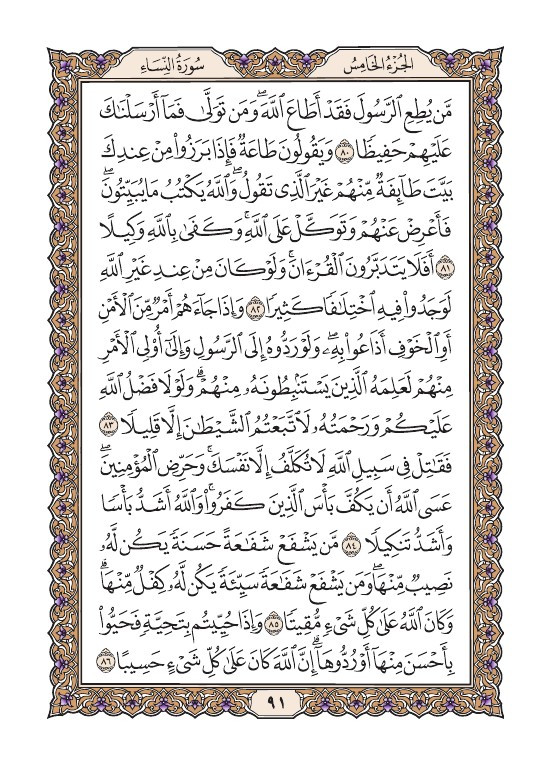 الجُزْءُ الخَامِسُ
سُورَةُ النِّسَاءِ
مَّن يُطِعِ ٱلرَّسُولَ فَقَدۡ أَطَاعَ ٱللَّهَۖ وَمَن تَوَلَّىٰ فَمَآ أَرۡسَلۡنَٰكَ
عَلَيۡهِمۡ حَفِيظٗا ٨٠ وَيَقُولُونَ طَاعَةٞ فَإِذَا بَرَزُواْ مِنۡ عِندِكَ
بَيَّتَ طَآئِفَةٞ مِّنۡهُمۡ غَيۡرَ ٱلَّذِي تَقُولُۖ وَٱللَّهُ يَكۡتُبُ مَا يُبَيِّتُونَۖ
فَأَعۡرِضۡ عَنۡهُمۡ وَتَوَكَّلۡ عَلَى ٱللَّهِۚ وَكَفَىٰ بِٱللَّهِ وَكِيلًا
٨١ أَفَلَا يَتَدَبَّرُونَ ٱلۡقُرۡءَانَۚ وَلَوۡ كَانَ مِنۡ عِندِ غَيۡرِ ٱللَّهِ
لَوَجَدُواْ فِيهِ ٱخۡتِلَٰفٗا كَثِيرٗا ٨٢ وَإِذَا جَآءَهُمۡ أَمۡرٞ مِّنَ ٱلۡأَمۡنِ
أَوِ ٱلۡخَوۡفِ أَذَاعُواْ بِهِۦۖ وَلَوۡ رَدُّوهُ إِلَى ٱلرَّسُولِ وَإِلَىٰٓ أُوْلِي ٱلۡأَمۡرِ
مِنۡهُمۡ لَعَلِمَهُ ٱلَّذِينَ يَسۡتَنۢبِطُونَهُۥ مِنۡهُمۡۗ وَلَوۡلَا فَضۡلُ ٱللَّهِ
عَلَيۡكُمۡ وَرَحۡمَتُهُۥ لَٱتَّبَعۡتُمُ ٱلشَّيۡطَٰنَ إِلَّا قَلِيلٗا ٨٣
فَقَٰتِلۡ فِي سَبِيلِ ٱللَّهِ لَا تُكَلَّفُ إِلَّا نَفۡسَكَۚ وَحَرِّضِ ٱلۡمُؤۡمِنِينَۖ
عَسَى ٱللَّهُ أَن يَكُفَّ بَأۡسَ ٱلَّذِينَ كَفَرُواْۚ وَٱللَّهُ أَشَدُّ بَأۡسٗا
وَأَشَدُّ تَنكِيلٗا ٨٤ مَّن يَشۡفَعۡ شَفَٰعَةً حَسَنَةٗ يَكُن لَّهُۥ
نَصِيبٞ مِّنۡهَاۖ وَمَن يَشۡفَعۡ شَفَٰعَةٗ سَيِّئَةٗ يَكُن لَّهُۥ كِفۡلٞ مِّنۡهَاۗ
وَكَانَ ٱللَّهُ عَلَىٰ كُلِّ شَيۡءٖ مُّقِيتٗا ٨٥ وَإِذَا حُيِّيتُم بِتَحِيَّةٖ فَحَيُّواْ
بِأَحۡسَنَ مِنۡهَآ أَوۡ رُدُّوهَآۗ إِنَّ ٱللَّهَ كَانَ عَلَىٰ كُلِّ شَيۡءٍ حَسِيبًا ٨٦
٩١